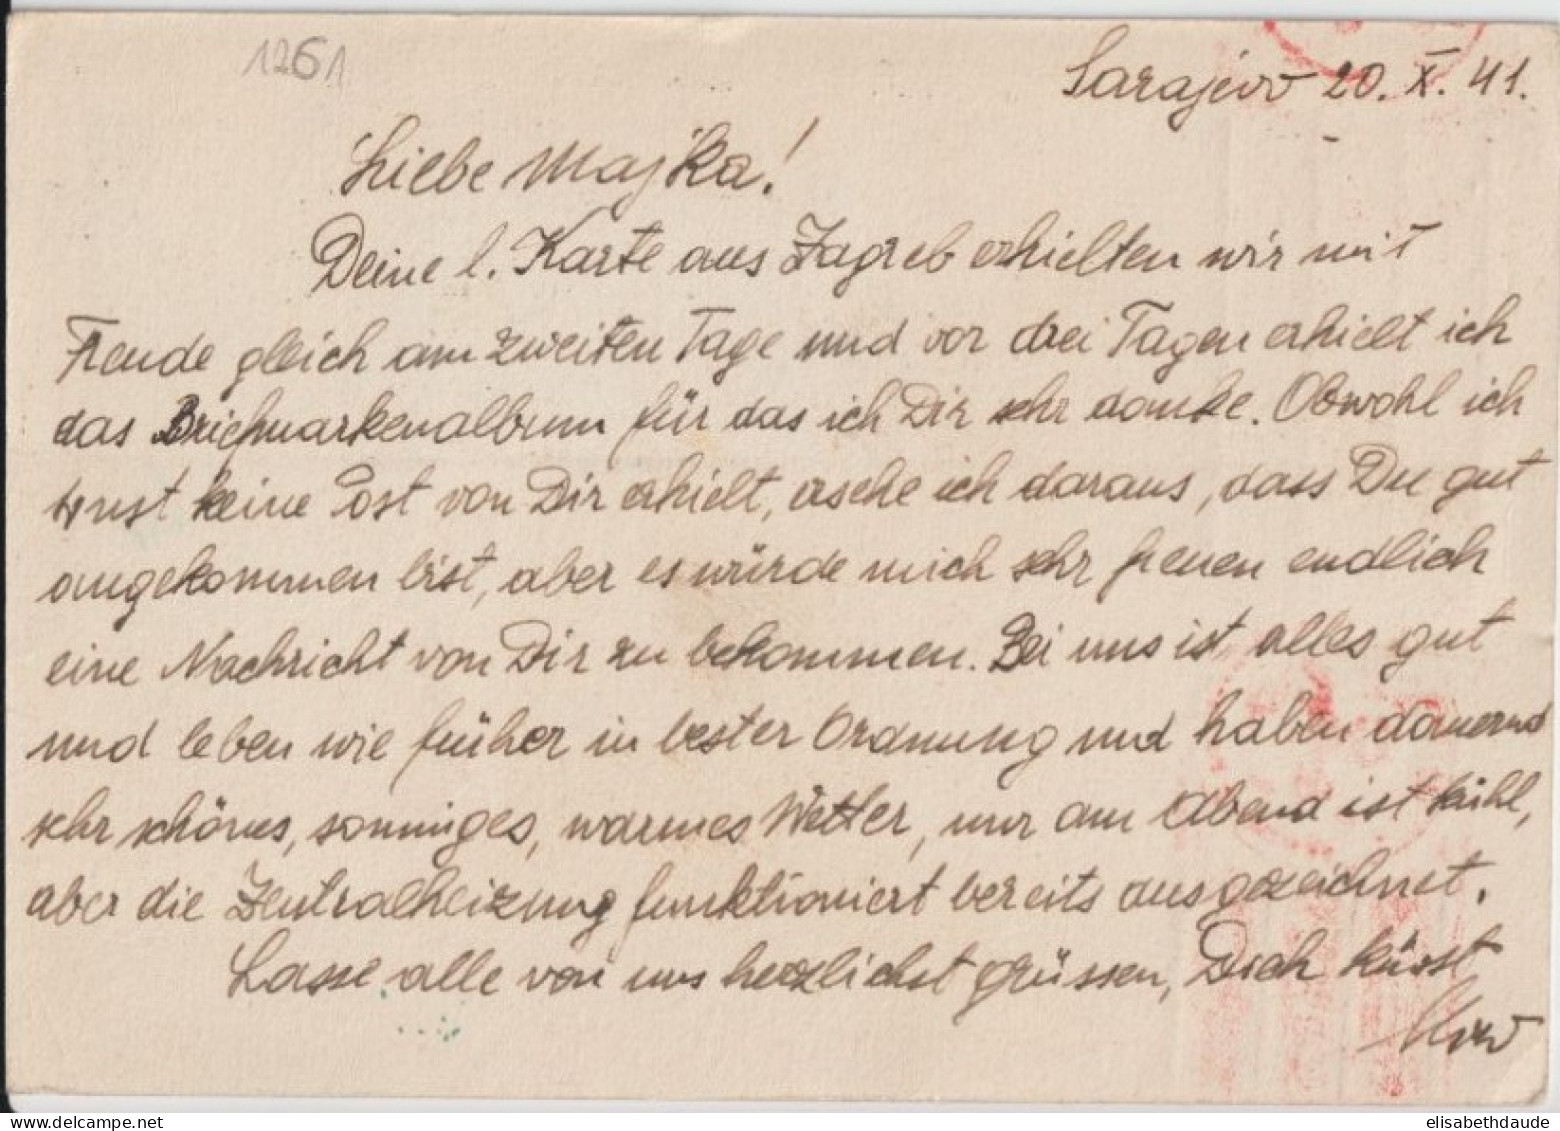 1261
Sarajevo 20. X. 41.
Liebe Majka!
Deine l. Karte aus Zagreb erhielten wir mit
Freude gleich am zweiten Tage und vor drei Tagen erhielt ich
das Briefmarkenalbum für das ich Dir sehr danke. Obwohl ich
sonst keine Post von Dir erhielt, ersehe ich daraus, dass Du gut
angekommen bist, aber es würde mich sehr freuen endlich
eine Nachricht von Dir zu bekommen. Bei uns ist alles gut
und leben wie früher in bester Ordnung und haben dauernd
sehr schönes, sonniges, warmes Wetter, nur am Abend ist kühl,
aber die Zentralheizung funktioniert bereits ausgezeichnet.
Lasse alle von uns herzlichst grüssen, Dich küsst
elisabethdaude